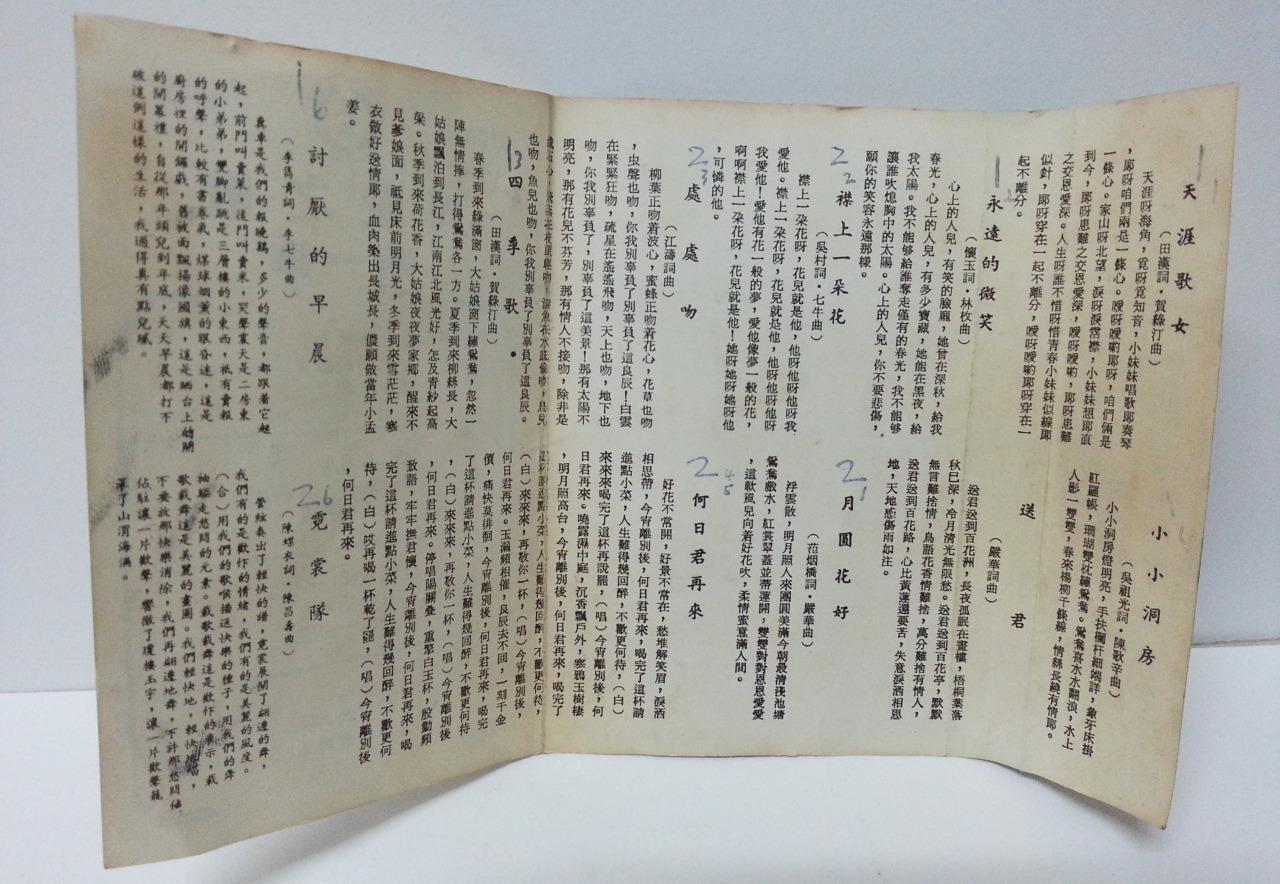 天涯歌女
（田漢詞·賀綠汀曲）
天涯呀海角，覓呀覓知音，小妹妹唱歌郎奏琴
，郎呀咱們兩是一條心。噯呀噯喲郎呀，咱們倆是
一條心。家山呀北望，淚呀淚霑襟，小妹妹想郎直
到今，郎呀患難之交恩愛深，噯呀噯喲，郎呀患難
之交恩愛深。人生呀誰不惜呀惜青春小妹妹似線郎
似針，郎呀穿在一起不離分，噯呀噯喲郎呀穿在一
起不離分。
1
永遠的微笑
（懷玉詞·林枚曲）
心上的人兒，有笑的臉龐，她曾在深秋，給我
春光，心上的人兒，有多少寶藏，她能在黑夜，給
我太陽。我不能够給誰奪走僅有的春光，我不能够
讓誰吹熄胸中的太陽。心上的人兒，你不要悲傷，
願你的笑容永遠那樣。
2 2
襟上一朵花
（吳村詞·七牛曲）
襟上一朶花呀，花兒就是他，他呀他呀他呀我
愛他。襟上一朶花呀，花兒就是他，他呀他呀他呀
我愛他！愛他有花一般的夢，愛他像夢一般的花，
啊啊襟上一朶花呀，花兒就是他！她呀她呀她呀他
，可憐的他。
2 3
處處吻
（江濤詞曲）
柳葉正吻着波心，蜜蜂正吻着花心，花草也吻
，虫聲也吻，你我別辜負了別辜負了這良辰！白雲
在緊緊狂吻，疏星在遙遙飛吻，天上也吻，地下也
吻，你我別辜負了，別辜負了這美景！那有太陽不
明亮，那有花兒不芬芳，那有情人不接吻，除非是
也吻，魚兒也吻，你我別辜負了別辜負了這良辰。
1 3
四季歌·
（田漢詞·賀綠汀曲）
春季到來綠滿窗，大姑娘窗下繡鴛鴦，忽然一
陣無情捧，打得鴛鴦各一方。夏季到來柳絲長，大
姑娘飄泊到長江，江南江北風光好，怎及青紗起高
梁。秋季到來荷花香，大姑娘夜夜夢家鄉，醒來不
見爹娘面，祇見床前明月光，冬季到來雪茫茫，寒
衣做好送情郎，血肉築出長城長，儂願做當年小孟
姜。
1 6
討厭的早晨
（李雋青詞·李七牛曲）
糞車是我們的報曉鷄，多少的聲音，都跟着它起
起，前門叫賣菜，後門叫賣米，哭聲震天是二房東
的小弟弟，雙脚亂跳是三層樓的小東西，祇有賣報
的呼聲，比較有書卷氣，煤球烟薰的眼昏迷，這是
廚房裡的開鑼戲。舊被面飄揚像國旗，這是晒台上的開
的開幕禮，自從那年頭兒到年底，天天早晨都打不
破這個這樣的生活，我過得真有點兒膩。
小小洞房
（吳祖光詞·陳歌辛曲）
小小洞房燈明亮，手扶欄杆細端詳，象牙床掛
紅羅帳，珊瑚雙枕繡鴛鴦。鴛鴦喜水水翻浪，水上
人影一雙雙，春來楊柳千條綫，情絲長繞有情郎。
送君
（嚴華詞曲）
送君送到百花洲，長夜孤眠在畫樓，梧桐葉落
秋巳深，冷月清光無限愁。送君送到百花亭，默默
無言難捨情，鳥語花香情難捨，萬分難捨有情人，
送君送到百花路，心比黃蓮還要苦，失意淚洒相思
地，天地感傷雨如注。
2 1
月圓花好
（范烟橋詞·嚴華曲）
浮雲散，明月照人來團圓美滿今朝最清淺池塘
鴛鴦戲水，紅裳翠蓋並蒂蓮開，雙雙對對恩恩愛愛
，這軟風兒向着好花吹，柔情蜜意滿人間。
2 4 5
何日君再來
好花不常開，好景不常在，愁堆解笑眉，淚洒
相思帶，今宵離別後，何日君再來，喝完了這杯請
進點小菜，人生難得幾回醉，不歡更何待，（白）
來來來喝完了這杯再說罷，（唱）今宵離別後，何
日君再來。曉露濕中庭，沉香飄戶外，寒鴉玉樹棲
，明月照高台，今宵離別後，何日君再來，喝完了
這杯請進點小菜，人生難得幾回醉，不歡更何待，
（白）來來來，再敬你一杯，（唱）今宵離別後，
何日君再來。玉漏頻相催，良辰去不回，一刻千金
價，痛快莫徘徊，今宵離別後，何日君再來，喝完
了這杯請進點小菜，人生難得幾回醉，不歡更何待
，（白）來來來，再敬你一杯，（唱）今宵離別後
，何日君再來。停唱陽關叠，重擎白玉杯，殷勤頻
致語，牢牢撫君懷，今宵離別後，何日君再來，喝
完了這杯請進點小菜，人生難得幾回醉，不歡更何
待，（白）哎再喝一杯乾了罷，（唱）今宵離別後
，何日君再來。
2 6
霓裳隊
（陳蝶衣詞·陳昌壽曲）
管絃奏出了輕快的譜，霓裳展開了翩遷的舞，
我們有的是歡忭的情緒，我們有的是美麗的風度。
（合）用我們的歌喉播送快樂的種子，用我們的舞
袖驅走愁悶的元素，載歌載舞這是歡忭的展示，載
歌載舞這是美麗的畫圖。我們輕快地，輕快地唱，
不要放那快樂消除，我們再翩遷地舞，不許那愁悶佔
佔駐讓一片歡聲，響徹了瓊樓玉宇，讓一片歡聲籠
罩了山湄海滿。